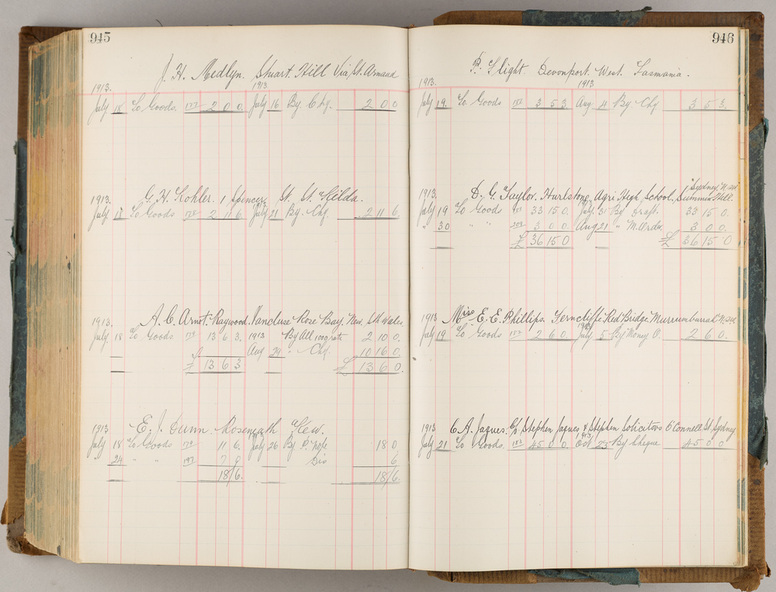 945
J. H. Medlyn. Stuart Hill Via St. Arnaud
1913. 1913
July 15 To Goods. 2 0 0 July 16 By Chq. 2 0 0
G. H. Kohler. 1 Spencer St. St. Kilda.
1913.
July 17 To Goods 2 11 6 July 21 By Chq 2 11 6
A. C. Arnot. Raywood. Vaucluse Rose Bay. New Sth Wales
1913. 1913
July 18 To Goods 13 6 3 By All 2 10 0
Aug 29 " Chq. 10 16 0
£ 13 6 3 £ 13 6 0
E. J. Gunn. Kew.
1913
July 18 To Goods 11 6 July 26 By P. Note 18 0
24 " " 7 0 Dis 6
18/6 18/6
946
P. Slight. Devonport West. Tasmania.
1913. 1913
July 19 To Goods 3 5 3 Aug 4 By Chq 3 5 3
D. G. Taylor. Hurlstone Agri High School, Summer Hill
Sydney N.SW
1913
July 19 To Goods 33 15 0 July 31 By Draft 33 15 0
30 " " 3 0 0 Aug 21 " M. Order 3 0 0
£ 36 15 0 £ 36 15 0
Miss E. E. Phillips. Ferncliffe Red Bridge Murrumburrah N.SW
1913
July 19 To Goods 2 6 0 July By Money O. 2 6 0
C. A. Jaques. C/o Stephen Jaques & Stephen Solicitors O'Connell St. Sydney
1913 1913
July 21 To Goods 45 0 0 Oct 25 By Cheque 45 0 0